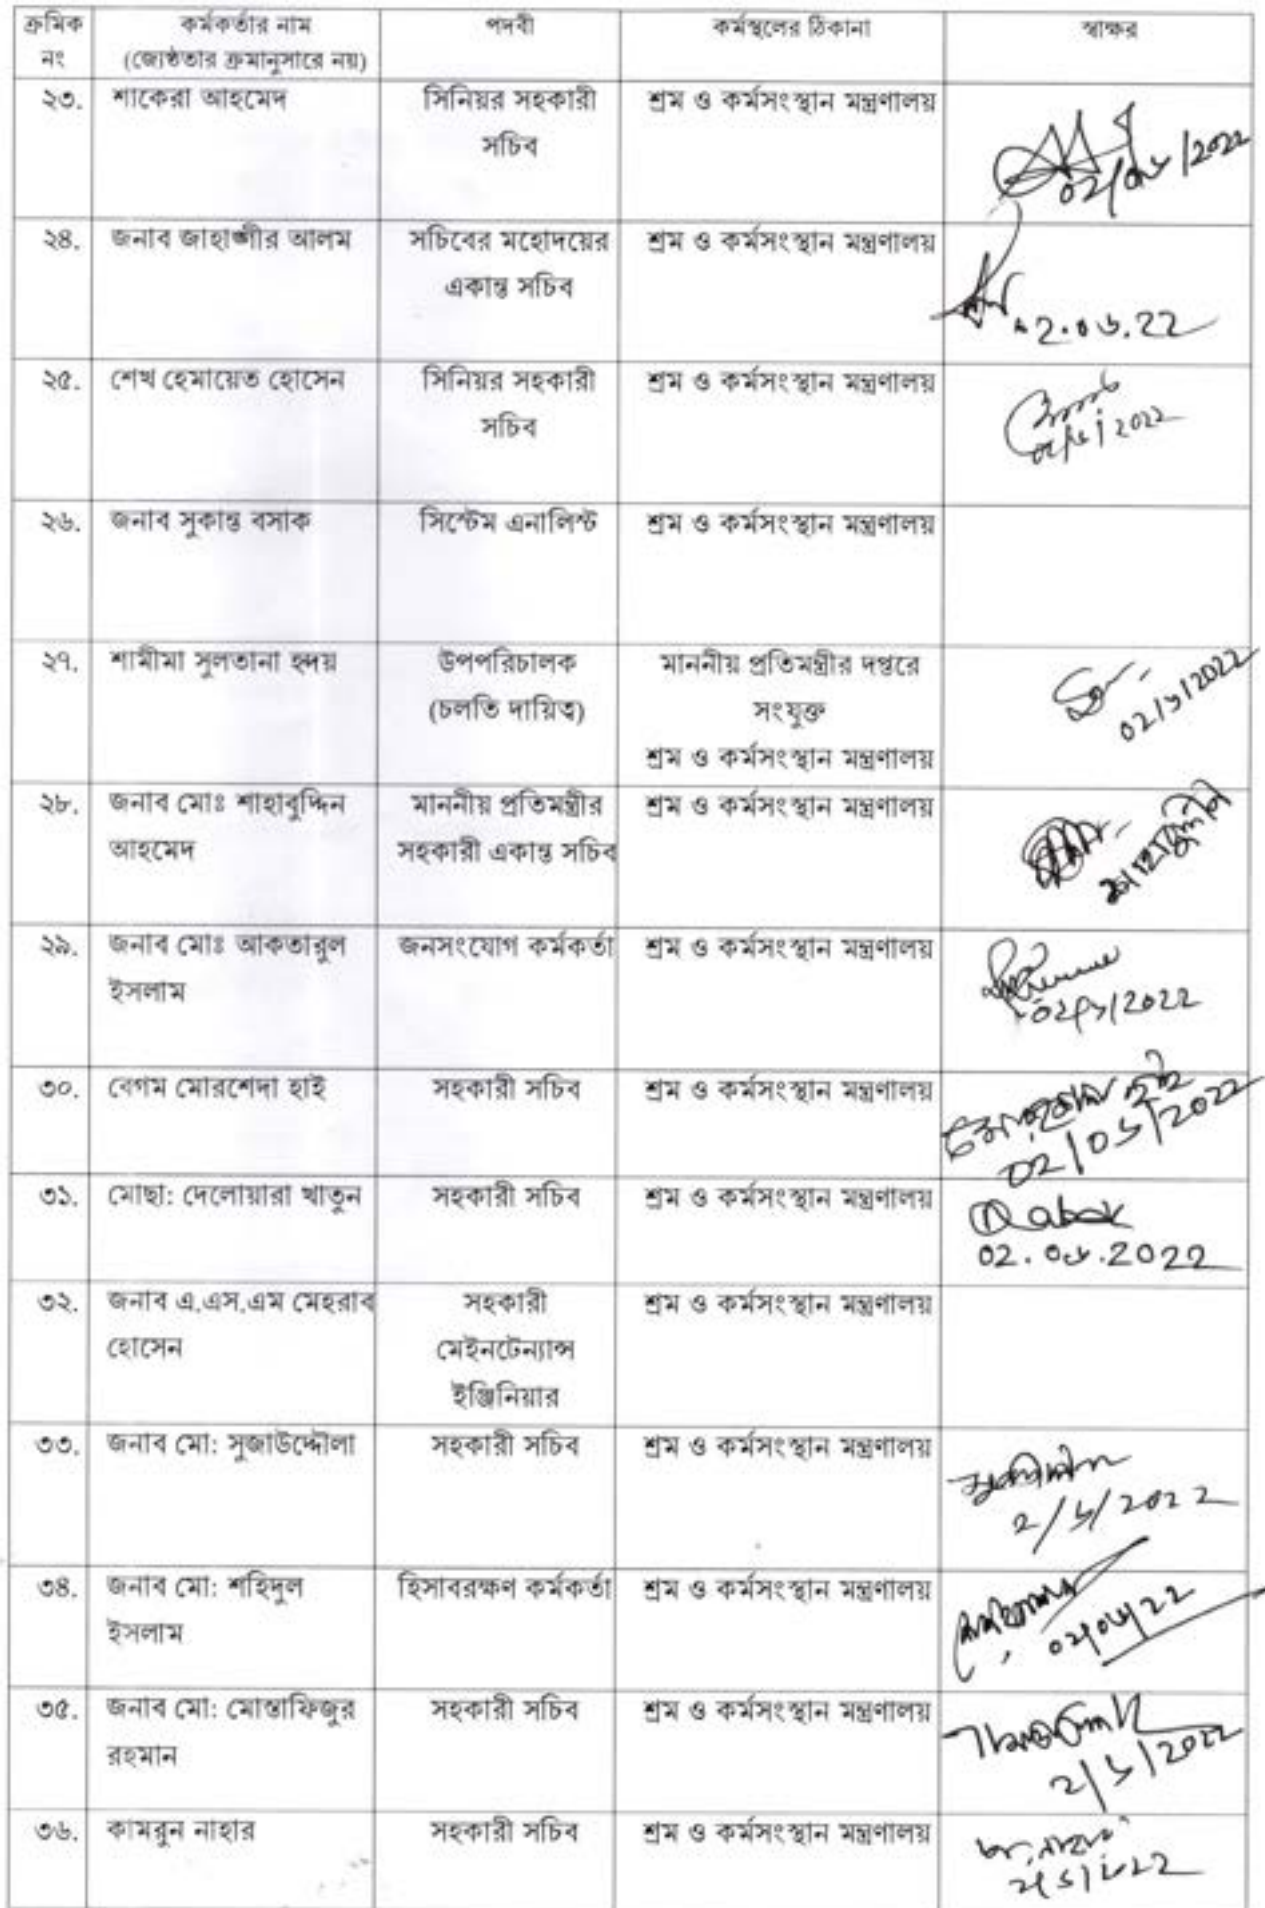 ক্রমিক নং | কর্মকর্তার নাম (জ্যেষ্ঠতার ক্রমানুসারে নয়) | পদবী | কর্মস্থলের ঠিকানা | স্বাক্ষর
২৩. | শাকেরা আহমেদ | সিনিয়র সহকারী সচিব | শ্রম ও কর্মসংস্থান মন্ত্রণালয় | 02/০৬/2022
২৪. | জনাব জাহাঙ্গীর আলম | সচিবের মহোদয়ের একান্ত সচিব | শ্রম ও কর্মসংস্থান মন্ত্রণালয় | 2.০৬.22
২৫. | শেখ হেমায়েত হোসেন | সিনিয়র সহকারী সচিব | শ্রম ও কর্মসংস্থান মন্ত্রণালয় | 02/৬/2022
২৬. | জনাব সুকান্ত বসাক | সিস্টেম এনালিস্ট | শ্রম ও কর্মসংস্থান মন্ত্রণালয় |
২৭. | শামীমা সুলতানা হৃদয় | উপপরিচালক (চলতি দায়িত্ব) | মাননীয় প্রতিমন্ত্রীর দপ্তরে সংযুক্ত শ্রম ও কর্মসংস্থান মন্ত্রণালয় | 02/৬/2022
২৮. | জনাব মোঃ শাহাবুদ্দিন আহমেদ | মাননীয় প্রতিমন্ত্রীর সহকারী একান্ত সচিব | শ্রম ও কর্মসংস্থান মন্ত্রণালয় |
২৯. | জনাব মোঃ আকতারুল ইসলাম | জনসংযোগ কর্মকর্তা | শ্রম ও কর্মসংস্থান মন্ত্রণালয় | 02/৬/2022
৩০. | বেগম মোরশেদা হাই | সহকারী সচিব | শ্রম ও কর্মসংস্থান মন্ত্রণালয় | 02/0৬/2022
৩১. | মোছা: দেলোয়ারা খাতুন | সহকারী সচিব | শ্রম ও কর্মসংস্থান মন্ত্রণালয় | 02.0৬.2022
৩২. | জনাব এ.এস.এম মেহরাব হোসেন | সহকারী মেইনটেন্যান্স ইঞ্জিনিয়ার | শ্রম ও কর্মসংস্থান মন্ত্রণালয় |
৩৩. | জনাব মো: সুজাউদ্দৌলা | সহকারী সচিব | শ্রম ও কর্মসংস্থান মন্ত্রণালয় | ২/৬/2022
৩৪. | জনাব মো: শহিদুল ইসলাম | হিসাবরক্ষণ কর্মকর্তা | শ্রম ও কর্মসংস্থান মন্ত্রণালয় | ০২/০৬/22
৩৫. | জনাব মো: মোস্তাফিজুর রহমান | সহকারী সচিব | শ্রম ও কর্মসংস্থান মন্ত্রণালয় | 2/৬/2022
৩৬. | কামরুন নাহার | সহকারী সচিব | শ্রম ও কর্মসংস্থান মন্ত্রণালয় | ২/৬/2022